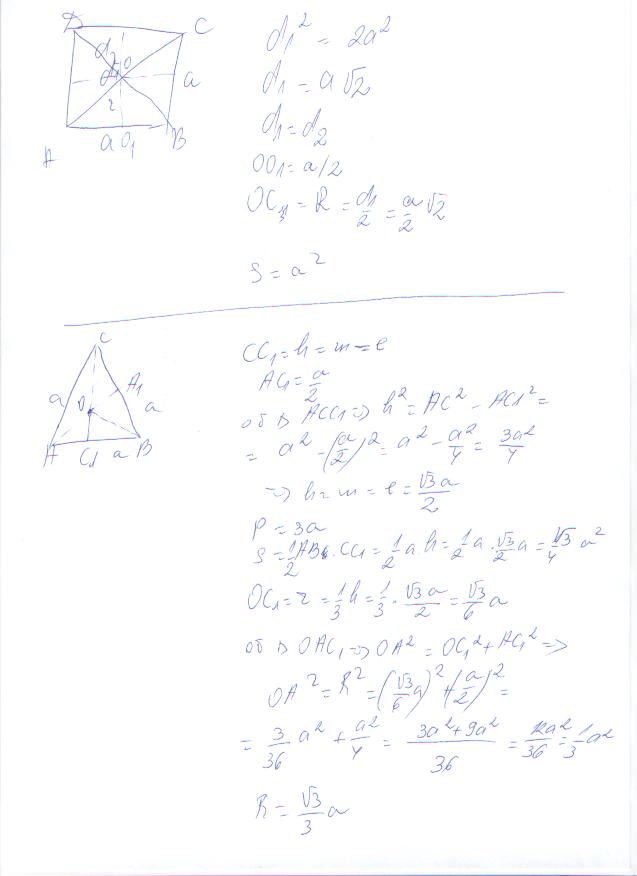 D
C
d₂
d₁
O
a
r
a O₁ B
A
d₁² = 2a²
d₁ = a√2
d₁ = d₂
OO₁ = a/2
OC = R = d₁/2 = a/2 √2
S = a²
C
a O A₁ a
A C₁ a B
CC₁ = h = m = l
AC₁ = a/2
от △ ACC₁ => h² = AC² - AC₁² =
= a² - (a/2)² = a² - a²/4 = 3a²/4
=> h = m = l = √3a/2
P = 3a
S = 1/2 AB · CC₁ = 1/2 a h = 1/2 a · √3/2 a = √3/4 a²
OC₁ = r = 1/3 h = 1/3 · √3a/2 = √3/6 a
от △ OAC₁ => OA² = OC₁² + AC₁² =>
OA² = R² = (√3/6 a)² + (a/2)² =
= 3/36 a² + a²/4 = 3a²+9a²/36 = 12a²/36 = 1/3 a²
R = √3/3 a